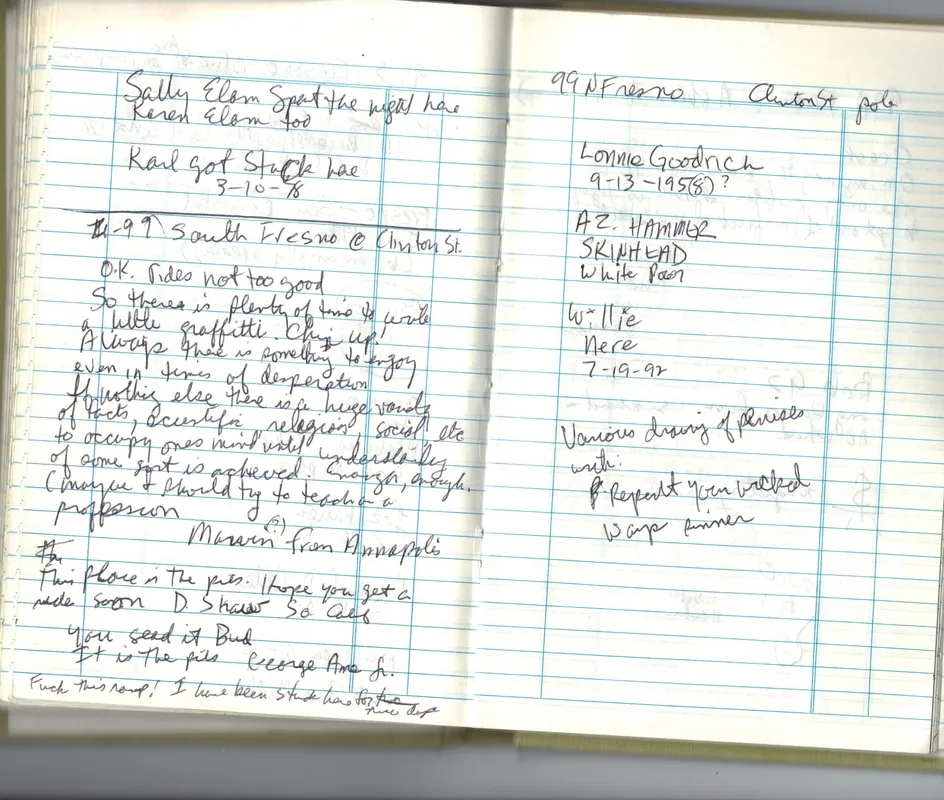 Sally Elam Spent the night here
Karen Elam too
Karl got Stuck here
3-10-78
99 South Fresno @ Clinton St.
O.K. rides not too good
So there is plenty of time to write
a little graffitti. Chin up.
Always there is something to enjoy
even in times of desperation
If nothing else there is a huge variety
of facts, scientific, religious, social etc
to occupy ones mind until understanding
of some sort is achieved. Enough, enough.
(maybe I should try to teach as a
proffession
Marvin (?) from Annapolis
This place is the pits. I hope you get a
ride soon D. Shaw So Calif
You said it Bud
It is the pits George Ame Jr.
Fuck this ramp! I have been Stuck here for two
days
99 N Fresno Clinton St pole
Lonnie Goodrich
9-13-195(8)?
AZ. HAMMER
SKINHEAD
White Power
Willie
Here
7-19-92
Various drawing of penises
with:
Repent your wicked
ways sinner